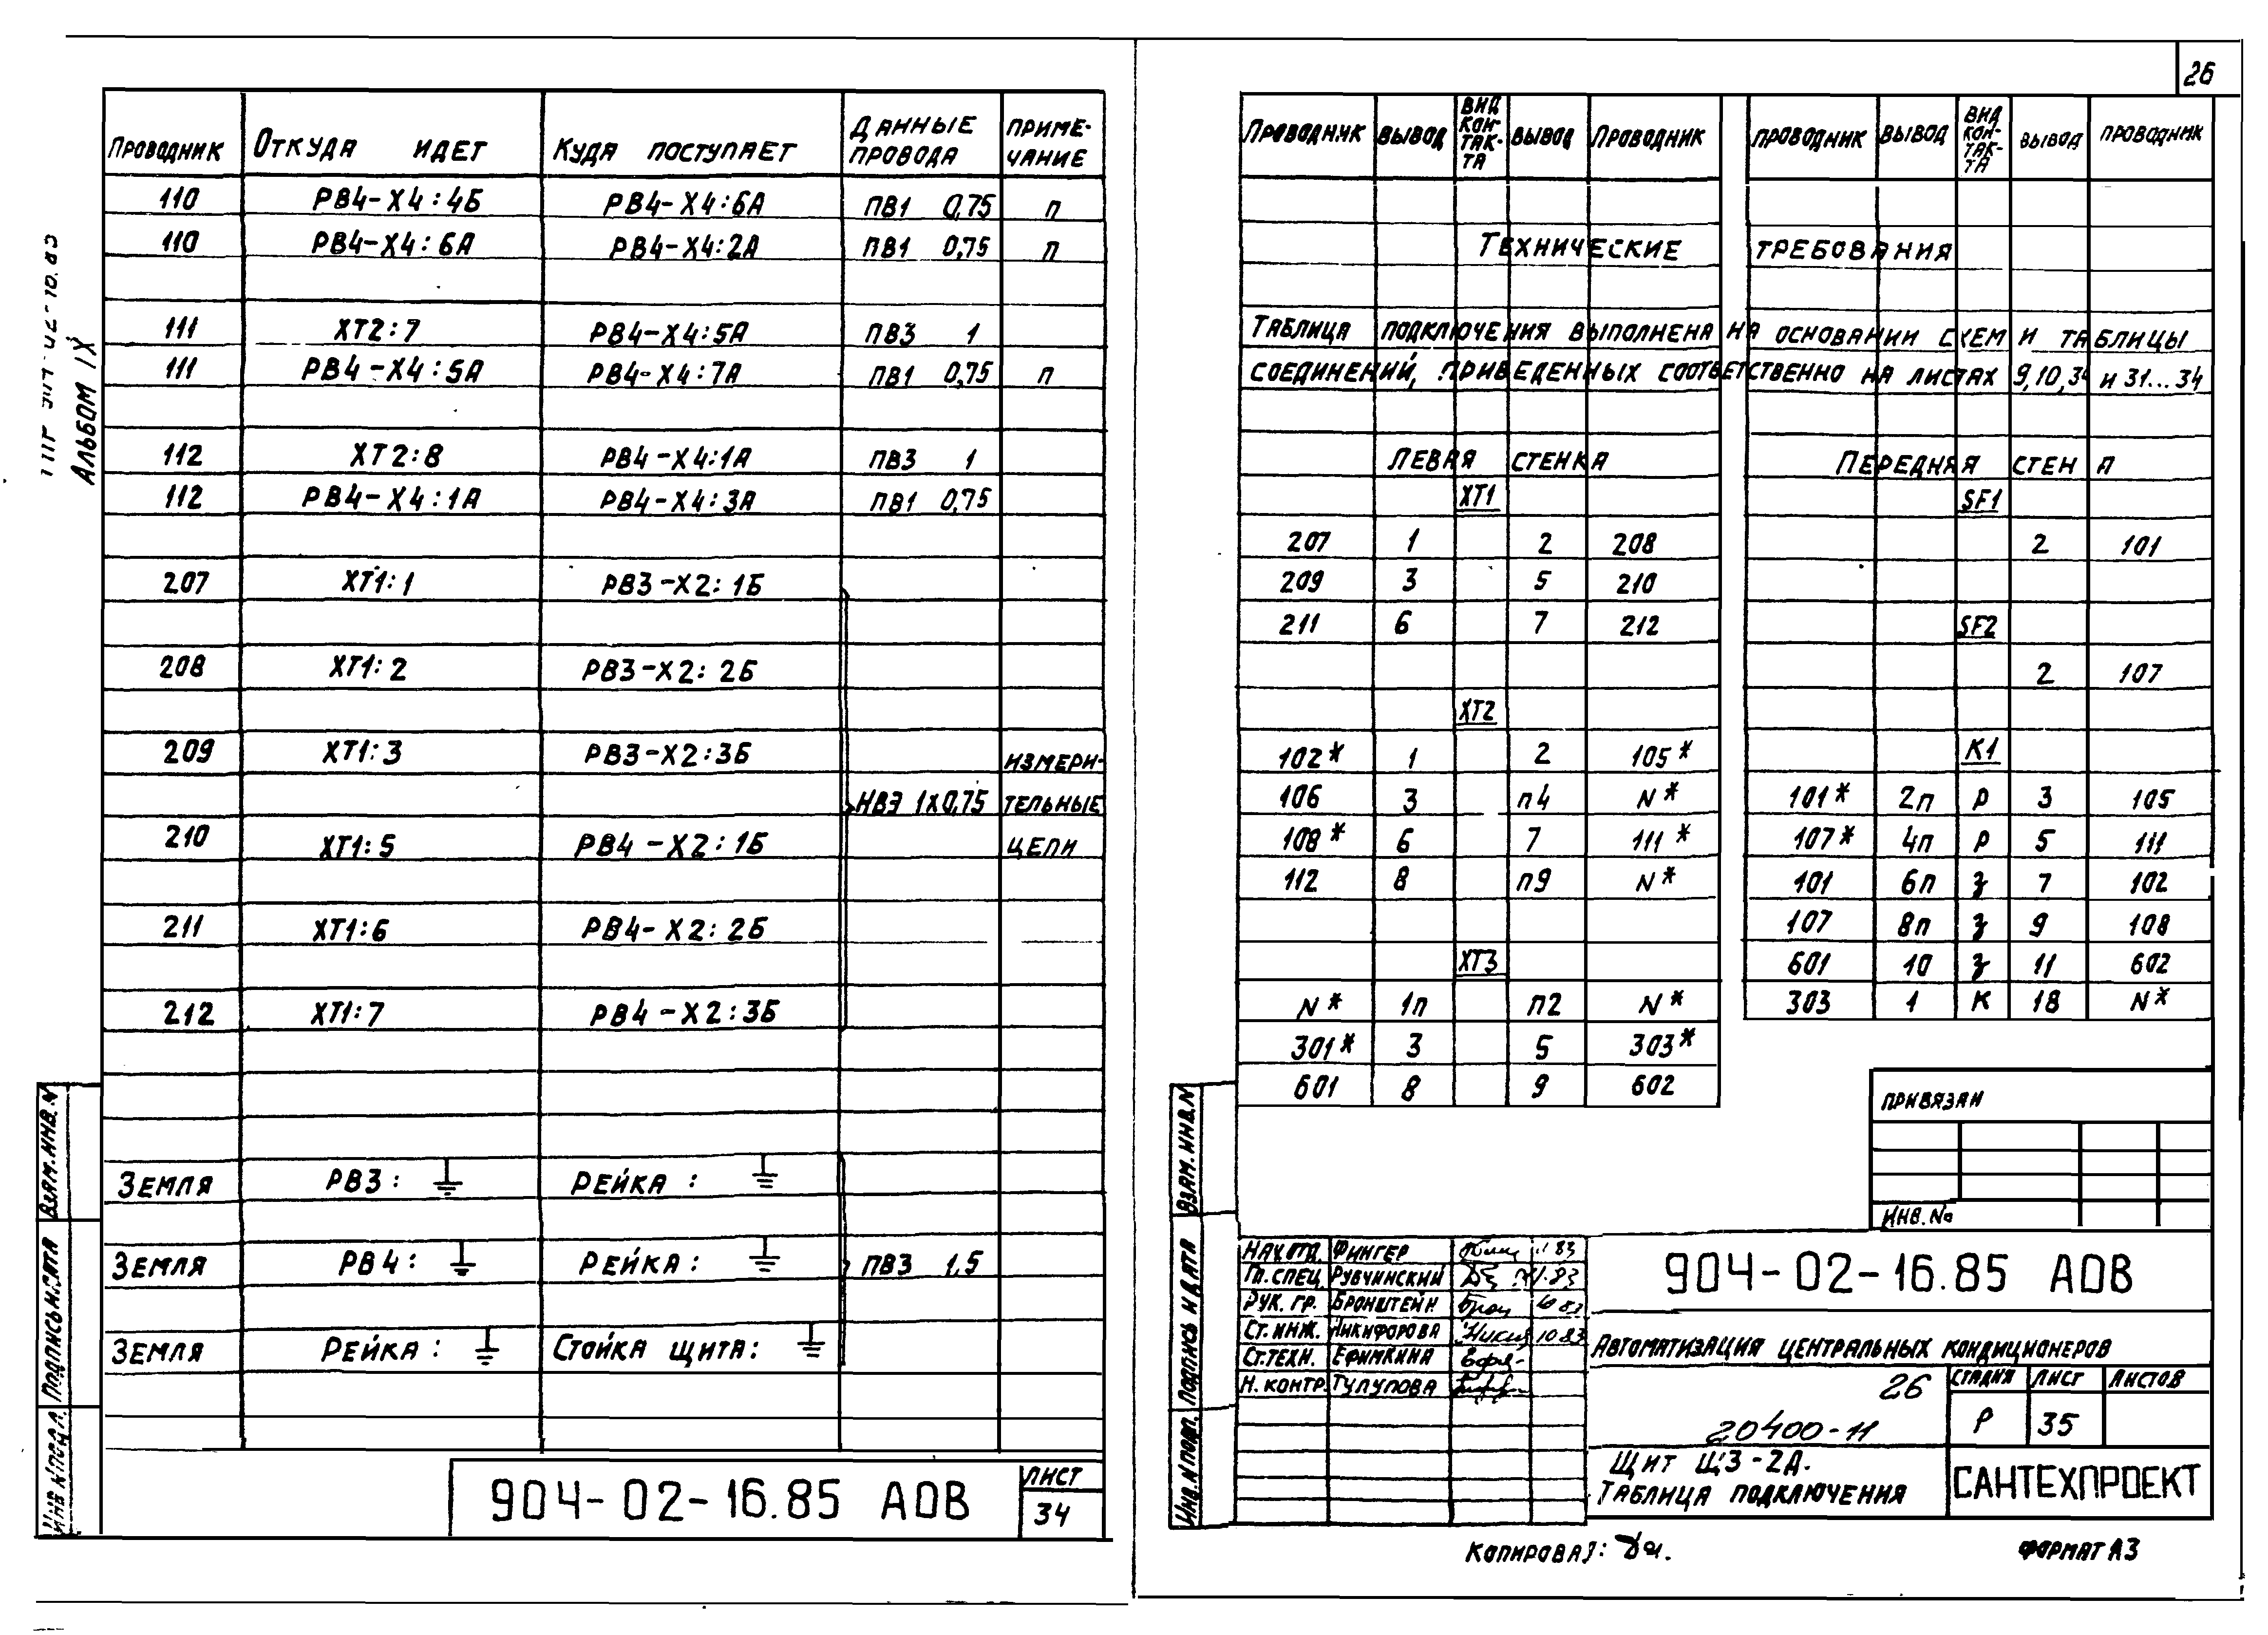 26
АЛЬБОМ IX
ПРОВОДНИК ОТКУДА ИДЕТ КУДА ПОСТУПАЕТ ДАННЫЕ ПРОВОДА ПРИМЕЧАНИЕ
110 РВ4-Х4:4Б РВ4-Х4:6А ПВ1 0,75 П
110 РВ4-Х4:6А РВ4-Х4:2А ПВ1 0,75 П
111 ХТ2:7 РВ4-Х4:5А ПВ3 1
111 РВ4-Х4:5А РВ4-Х4:7А ПВ1 0,75 П
112 ХТ2:8 РВ4-Х4:1А ПВ3 1
112 РВ4-Х4:1А РВ4-Х4:3А ПВ1 0,75
207 ХТ1:1 РВ3-Х2:1Б
208 ХТ1:2 РВ3-Х2:2Б
209 ХТ1:3 РВ3-Х2:3Б ИЗМЕРИ-
НВЭ 1Х0,75 ТЕЛЬНЫЕ
210 ХТ1:5 РВ4-Х2:1Б ЦЕПИ
211 ХТ1:6 РВ4-Х2:2Б
212 ХТ1:7 РВ4-Х2:3Б
ЗЕМЛЯ РВ3: РЕЙКА:
ЗЕМЛЯ РВ4: РЕЙКА: ПВ3 1,5
ЗЕМЛЯ РЕЙКА: СТОЙКА ЩИТА:
904-02-16.85 АОВ
ЛИСТ
34
ВЗАМ. ИНВ. N
ПОДПИСЬ И ДАТА
ИНВ. N ПОДЛ.
ПРОВОДНИК ВЫВОД ВИД КОН-ТАК-ТА ВЫВОД ПРОВОДНИК
ТЕХНИЧЕСКИЕ ТРЕБОВАНИЯ
ТАБЛИЦА ПОДКЛЮЧЕНИЯ ВЫПОЛНЕНА НА ОСНОВАНИИ СХЕМ И ТАБЛИЦЫ
СОЕДИНЕНИЙ, ПРИВЕДЕННЫХ СООТВЕТСТВЕННО НА ЛИСТАХ 9,10,34 И 31...34
ЛЕВАЯ СТЕНКА
ХТ1
207 1 2 208
209 3 5 210
211 6 7 212
ХТ2
102* 1 2 105*
106 3 П4 N*
108* 6 7 111*
112 8 П9 N*
ХТ3
N* 1П П2 N*
301* 3 5 303*
601 8 9 602
ПРОВОДНИК ВЫВОД ВИД КОН-ТАК-ТА ВЫВОД ПРОВОДНИК
ПЕРЕДНЯЯ СТЕН А
SF1
2 101
SF2
2 107
К1
101* 2П Р 3 105
107* 4П Р 5 111
101 6П З 7 102
107 8П З 9 108
601 10 З 11 602
303 1 К 18 N*
ПРИВЯЗАН
ИНВ. №
ВЗАМ. ИНВ. N
ПОДПИСЬ И ДАТА
ИНВ. N ПОДЛ.
НАЧ. ОТД. ФИНГЕР 11 83
ГЛ. СПЕЦ. РУБЧИНСКИЙ
РУК. ГР. БРОНШТЕЙН 10 83
СТ. ИНЖ. НИКИФОРОВА 10 83
СТ. ТЕХН. ЕФИМКИНА
Н. КОНТР. ТУЛУПОВА
904-02-16.85 АОВ
АВТОМАТИЗАЦИЯ ЦЕНТРАЛЬНЫХ КОНДИЦИОНЕРОВ
26
20400-11
СТАДИЯ ЛИСТ ЛИСТОВ
Р 35
ЩИТ ЩЗ-2Д.
ТАБЛИЦА ПОДКЛЮЧЕНИЯ
САНТЕХПРОЕКТ
КОПИРОВАЛ:
ФОРМАТ А3